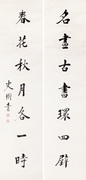 名畫古書環四壁
春花秋月各一時